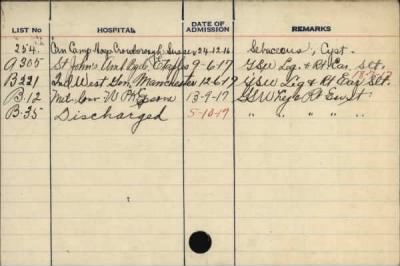 LIST NO HOSPITAL DATE OF ADMISSION REMARKS
254. Can Camp Hosp Crowborough Sussex 24.12.16 Sebaceous Cyst.
A305 St John's Amb Bgde Etaples 9-6-17 GSW Leg. & Rt Ear Slt.
B221 2nd West Gen. Manchester 12-6-17 GSW Leg & Rt Ear Slt.
B.12 Met. Con Epsom 13-9-17 GSW Rt
B.35 Discharged 5-10-17 " " " "